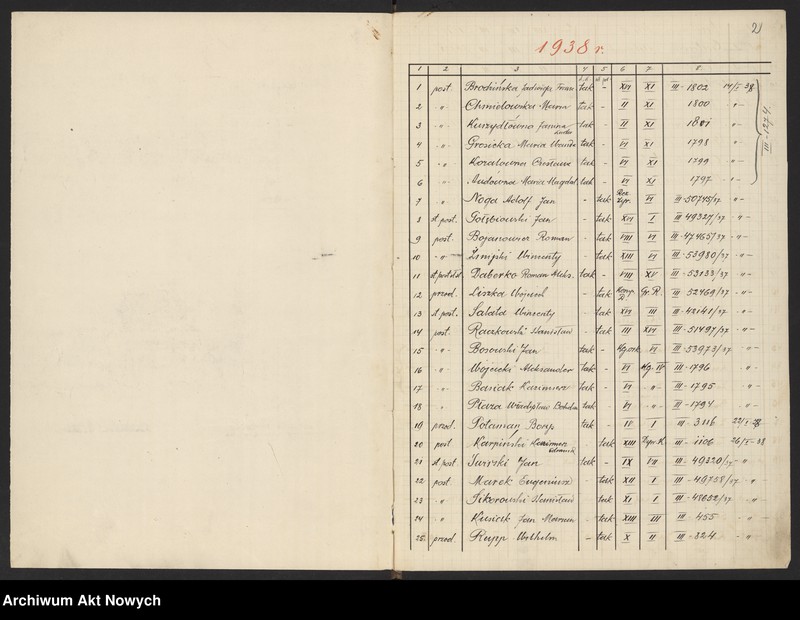 2)
1938 r.
1 2 3 4 5 6 7 8
1 post. Brodzińska Jadwiga tak - XIV XI III-1802 14/I-38
2 -"- Chmielowska Maria tak - II XI 1800 -"-
3 -"- Kurzydłówna Janina tak - II XI 1801 -"-
4 -"- Grosicka Maria Wanda tak - VI XI 1798 -"-
5 -"- Czesława tak - VI XI 1799 -"-
6 -"- Maria Magdal. tak - VI XI 1797 -"-
III-1274
7 -"- Noga Adolf Jan - tak VI III-50745/37 -"-
8 st. post. Gołębiowski Jan - tak XIV I III-49327/37 -"-
9 post. Bojanower Roman - tak VIII VI III-47465/37 -"-
10 -"- Wincenty - tak XIII VI III-53980/37 -"-
11 Daberko Roman Aleks. tak - VIII XV III-53133/37 -"-
12 przod. Liszka Wojciech - tak Komp. Gr. R. III-52469/37 -"-
13 st. post. Sałata Wincenty - tak XIV III III-42141/37 -"-
14 post. Raczkowski Stanisław - tak III XIV III-51497/37 -"-
15 -"- Bosowski Jan tak - VI III-53973/37 -"-
16 -"- Wójcicki Aleksander tak - VI Kg. IV III-1796 -"-
17 -"- Basiak Kazimierz tak - VI -"- III-1795 -"-
18 -"- Płaza Władysław Bohdan tak VI -"- III-1794 -"-
19 przod. Połaman Borys tak - IV I III-3116 22/I-38
20 post. Karpiński Kazimierz Dominik - tak XIII III-1106 26/I-38
21 st. post. Jan tak - IX VII III-49320/37 -"-
22 post. Marek Eugeniusz - tak XII I III-49758/37 -"-
23 -"- Sikorowski Stanisław tak XI I III-48652/37 -"-
24 -"- Kusiak Jan Marian - tak XIII III III-455 -"-
25 przod. Rupp Wilhelm - tak X II III-324 -"-
Archiwum Akt Nowych